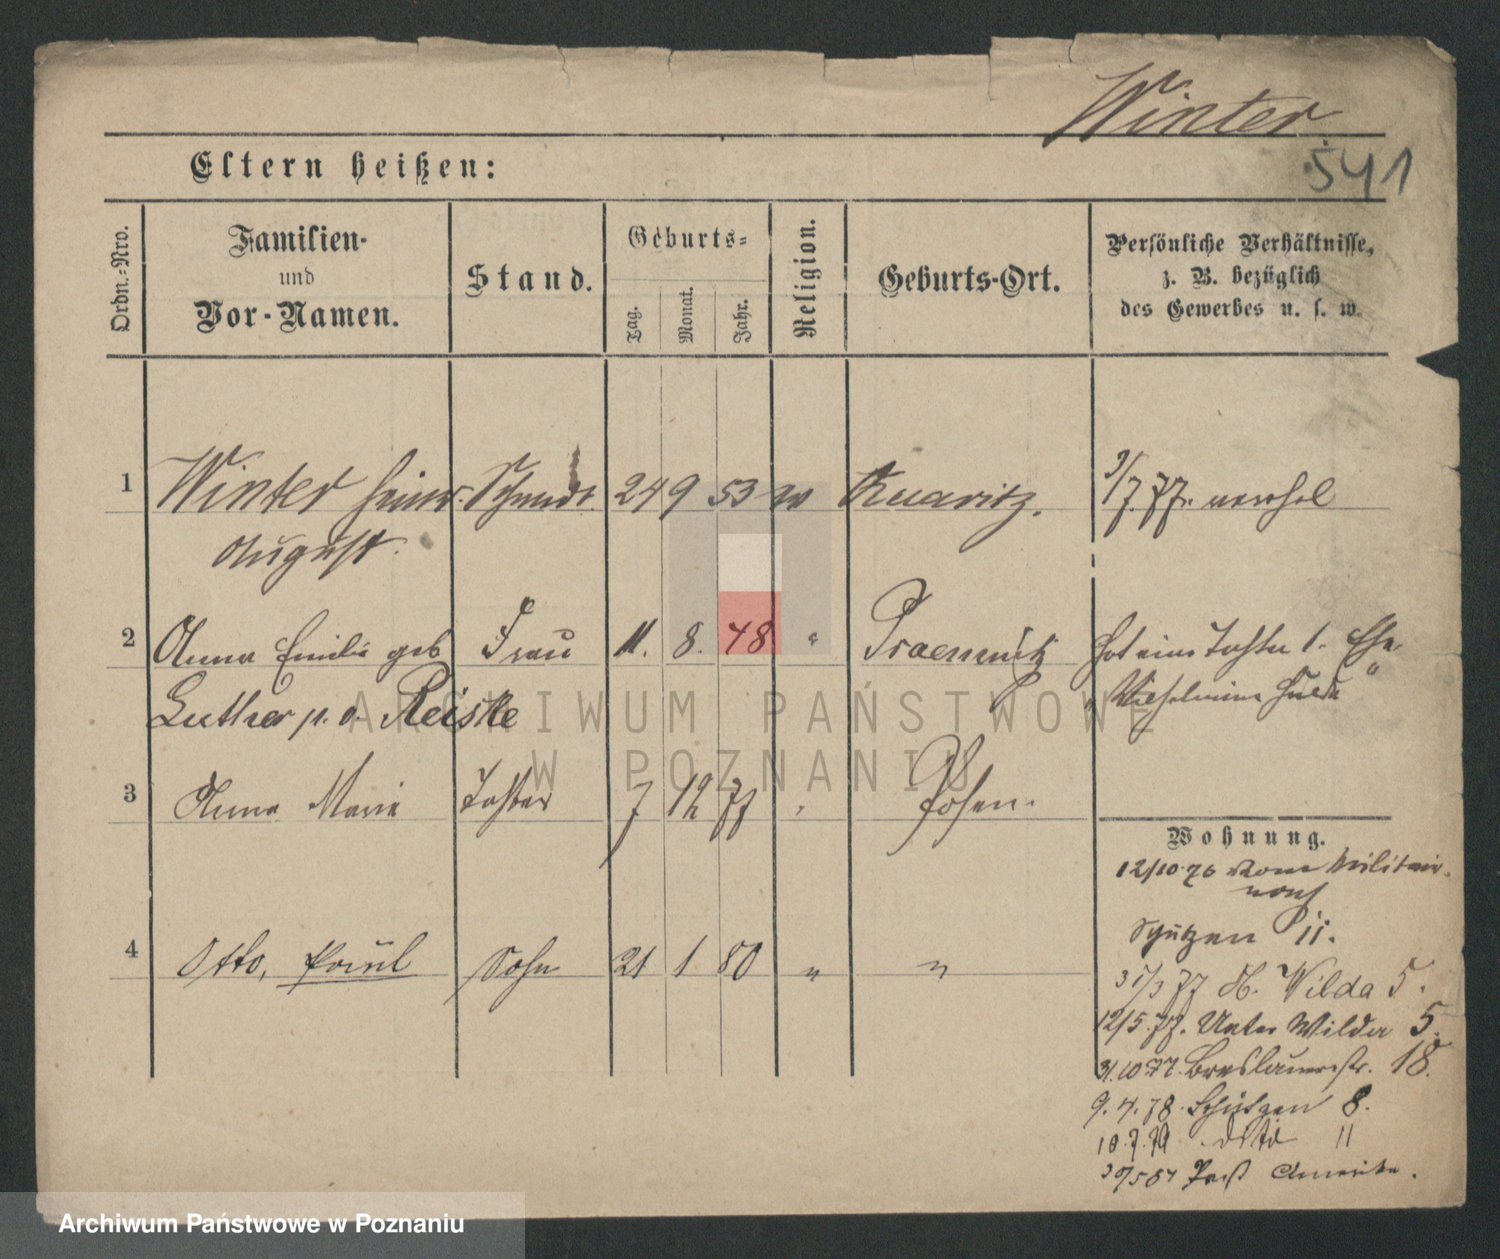 Winter
541
Eltern heißen:
Ordn.-Nro.
Familien-
und
Vor-Namen.
Stand.
Geburts-
Tag.
Monat.
Jahr.
Religion.
Geburts-Ort.
Persönliche Verhältnisse,
z. B. bezüglich
des Gewerbes u. s. w.
1 Winter Heinr. 24 9 53
August.
2 Anna Emilie geb Frau 11. 8. 48 "
Luther p. o. Reiske
Hat eine Tochter
Wilhelmine
3 Anna Marie Tochter 7 12 77 Posen.
Wohnung.
12/10.76 vom Militair.
nach
Schützen 11.
4 Otto, Paul Sohn 21 1 80 " "
31/3 77 St. Wilda 5.
12/5.77. Unter Wilda 5.
31.10 77. Breslauerstr. 18.
9.4.78. Schützen 8.
10.7.79 dito 11
Amerika.
ARCHIWUM PAŃSTWOWE
W POZNANIU
Archiwum Państwowe w Poznaniu